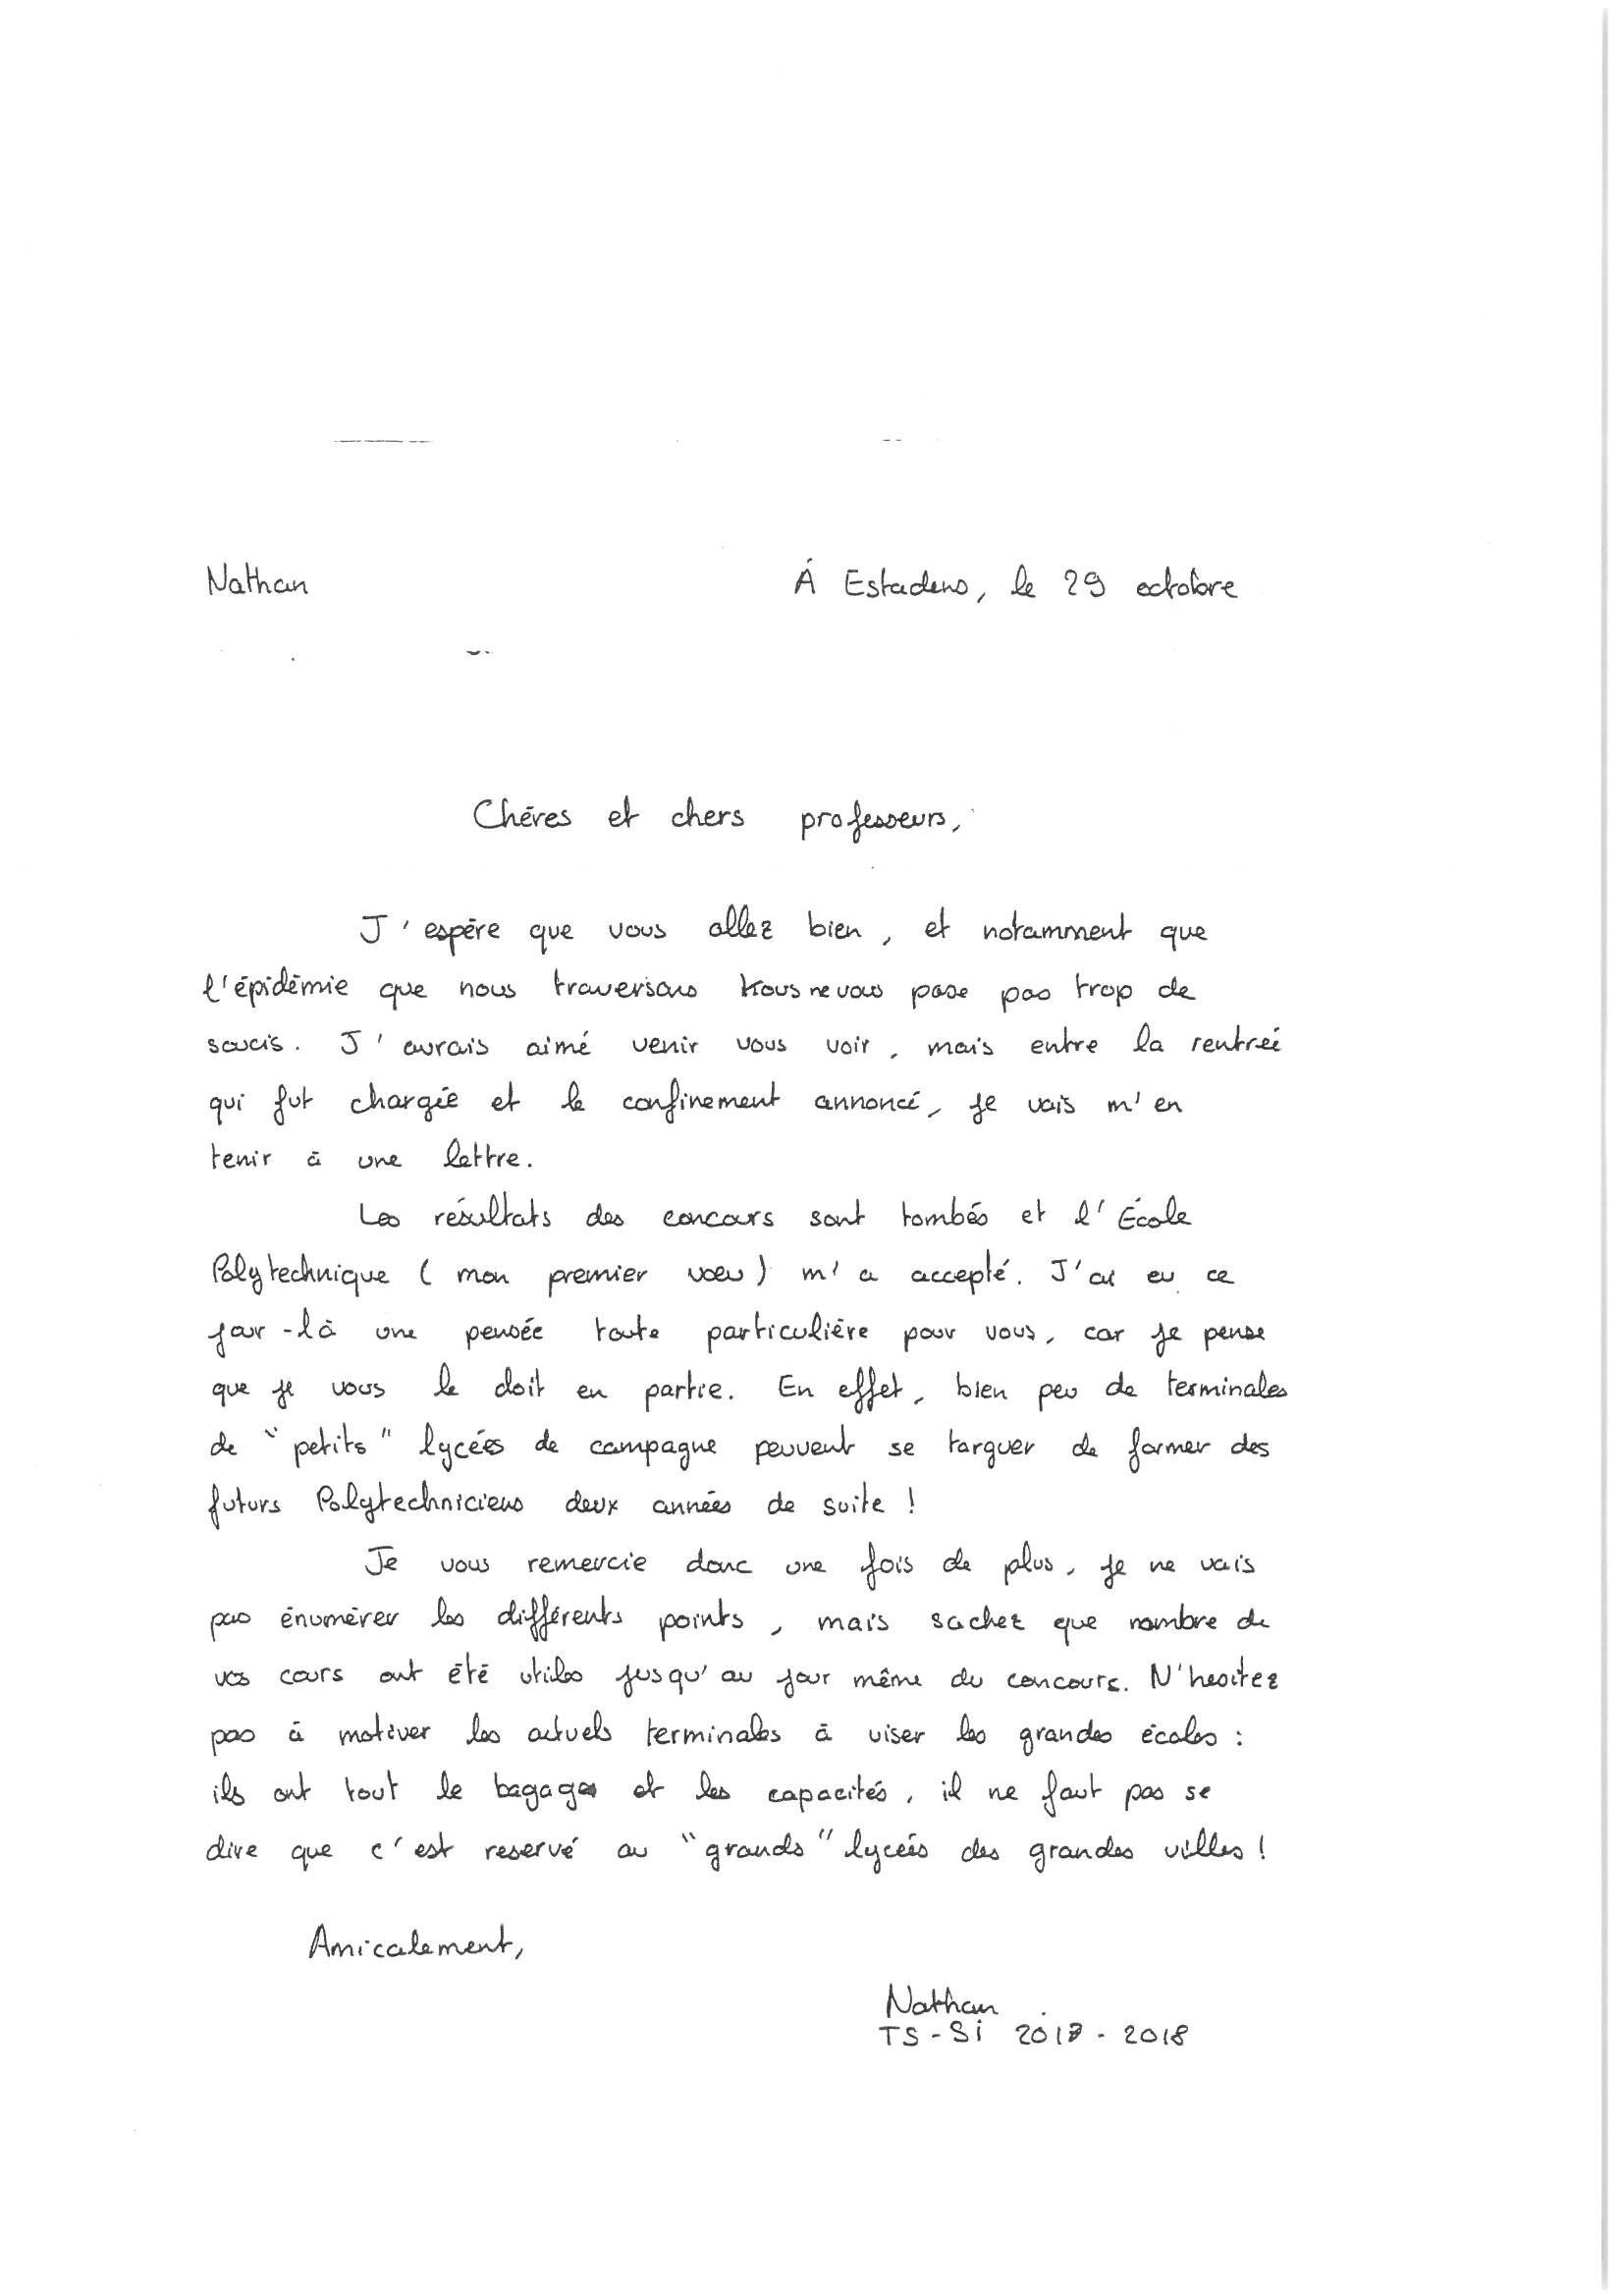 Nathan
À Estadens, le 29 octobre
Chères et chers professeurs,
J'espère que vous allez bien, et notamment que
l'épidémie que nous traversons ne vous pose pas trop de
soucis. J'aurais aimé venir vous voir, mais entre la rentrée
qui fut chargée et le confinement annoncé, je vais m'en
tenir à une lettre.
Les résultats des concours sont tombés et l'École
Polytechnique (mon premier voeu) m'a accepté. J'ai eu ce
jour-là une pensée toute particulière pour vous, car je pense
que je vous le doit en partie. En effet, bien peu de terminales
de "petits" lycées de campagne peuvent se targuer de former des
futurs Polytechniciens deux années de suite !
Je vous remercie donc une fois de plus, je ne vais
pas énumérer les différents points, mais sachez que nombre de
vos cours ont été utiles jusqu'au jour même du concours. N'hesitez
pas à motiver les actuels terminales à viser les grandes écoles :
ils ont tout le bagage et les capacités, il ne faut pas se
dire que c'est reservé au "grands" lycées des grandes villes !
Amicalement,
Nathan
TS-Si 2017-2018